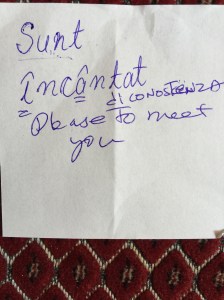 Sunt
încântat
di CONOSTENZA
Please to meet
you